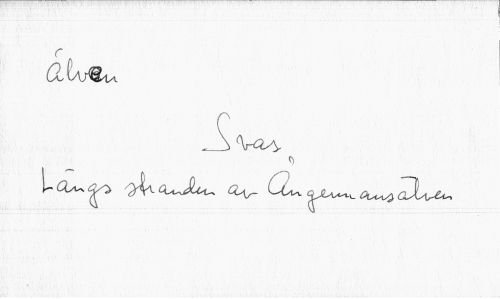 Älven
Svas
Längs stranden av Ångermanälven